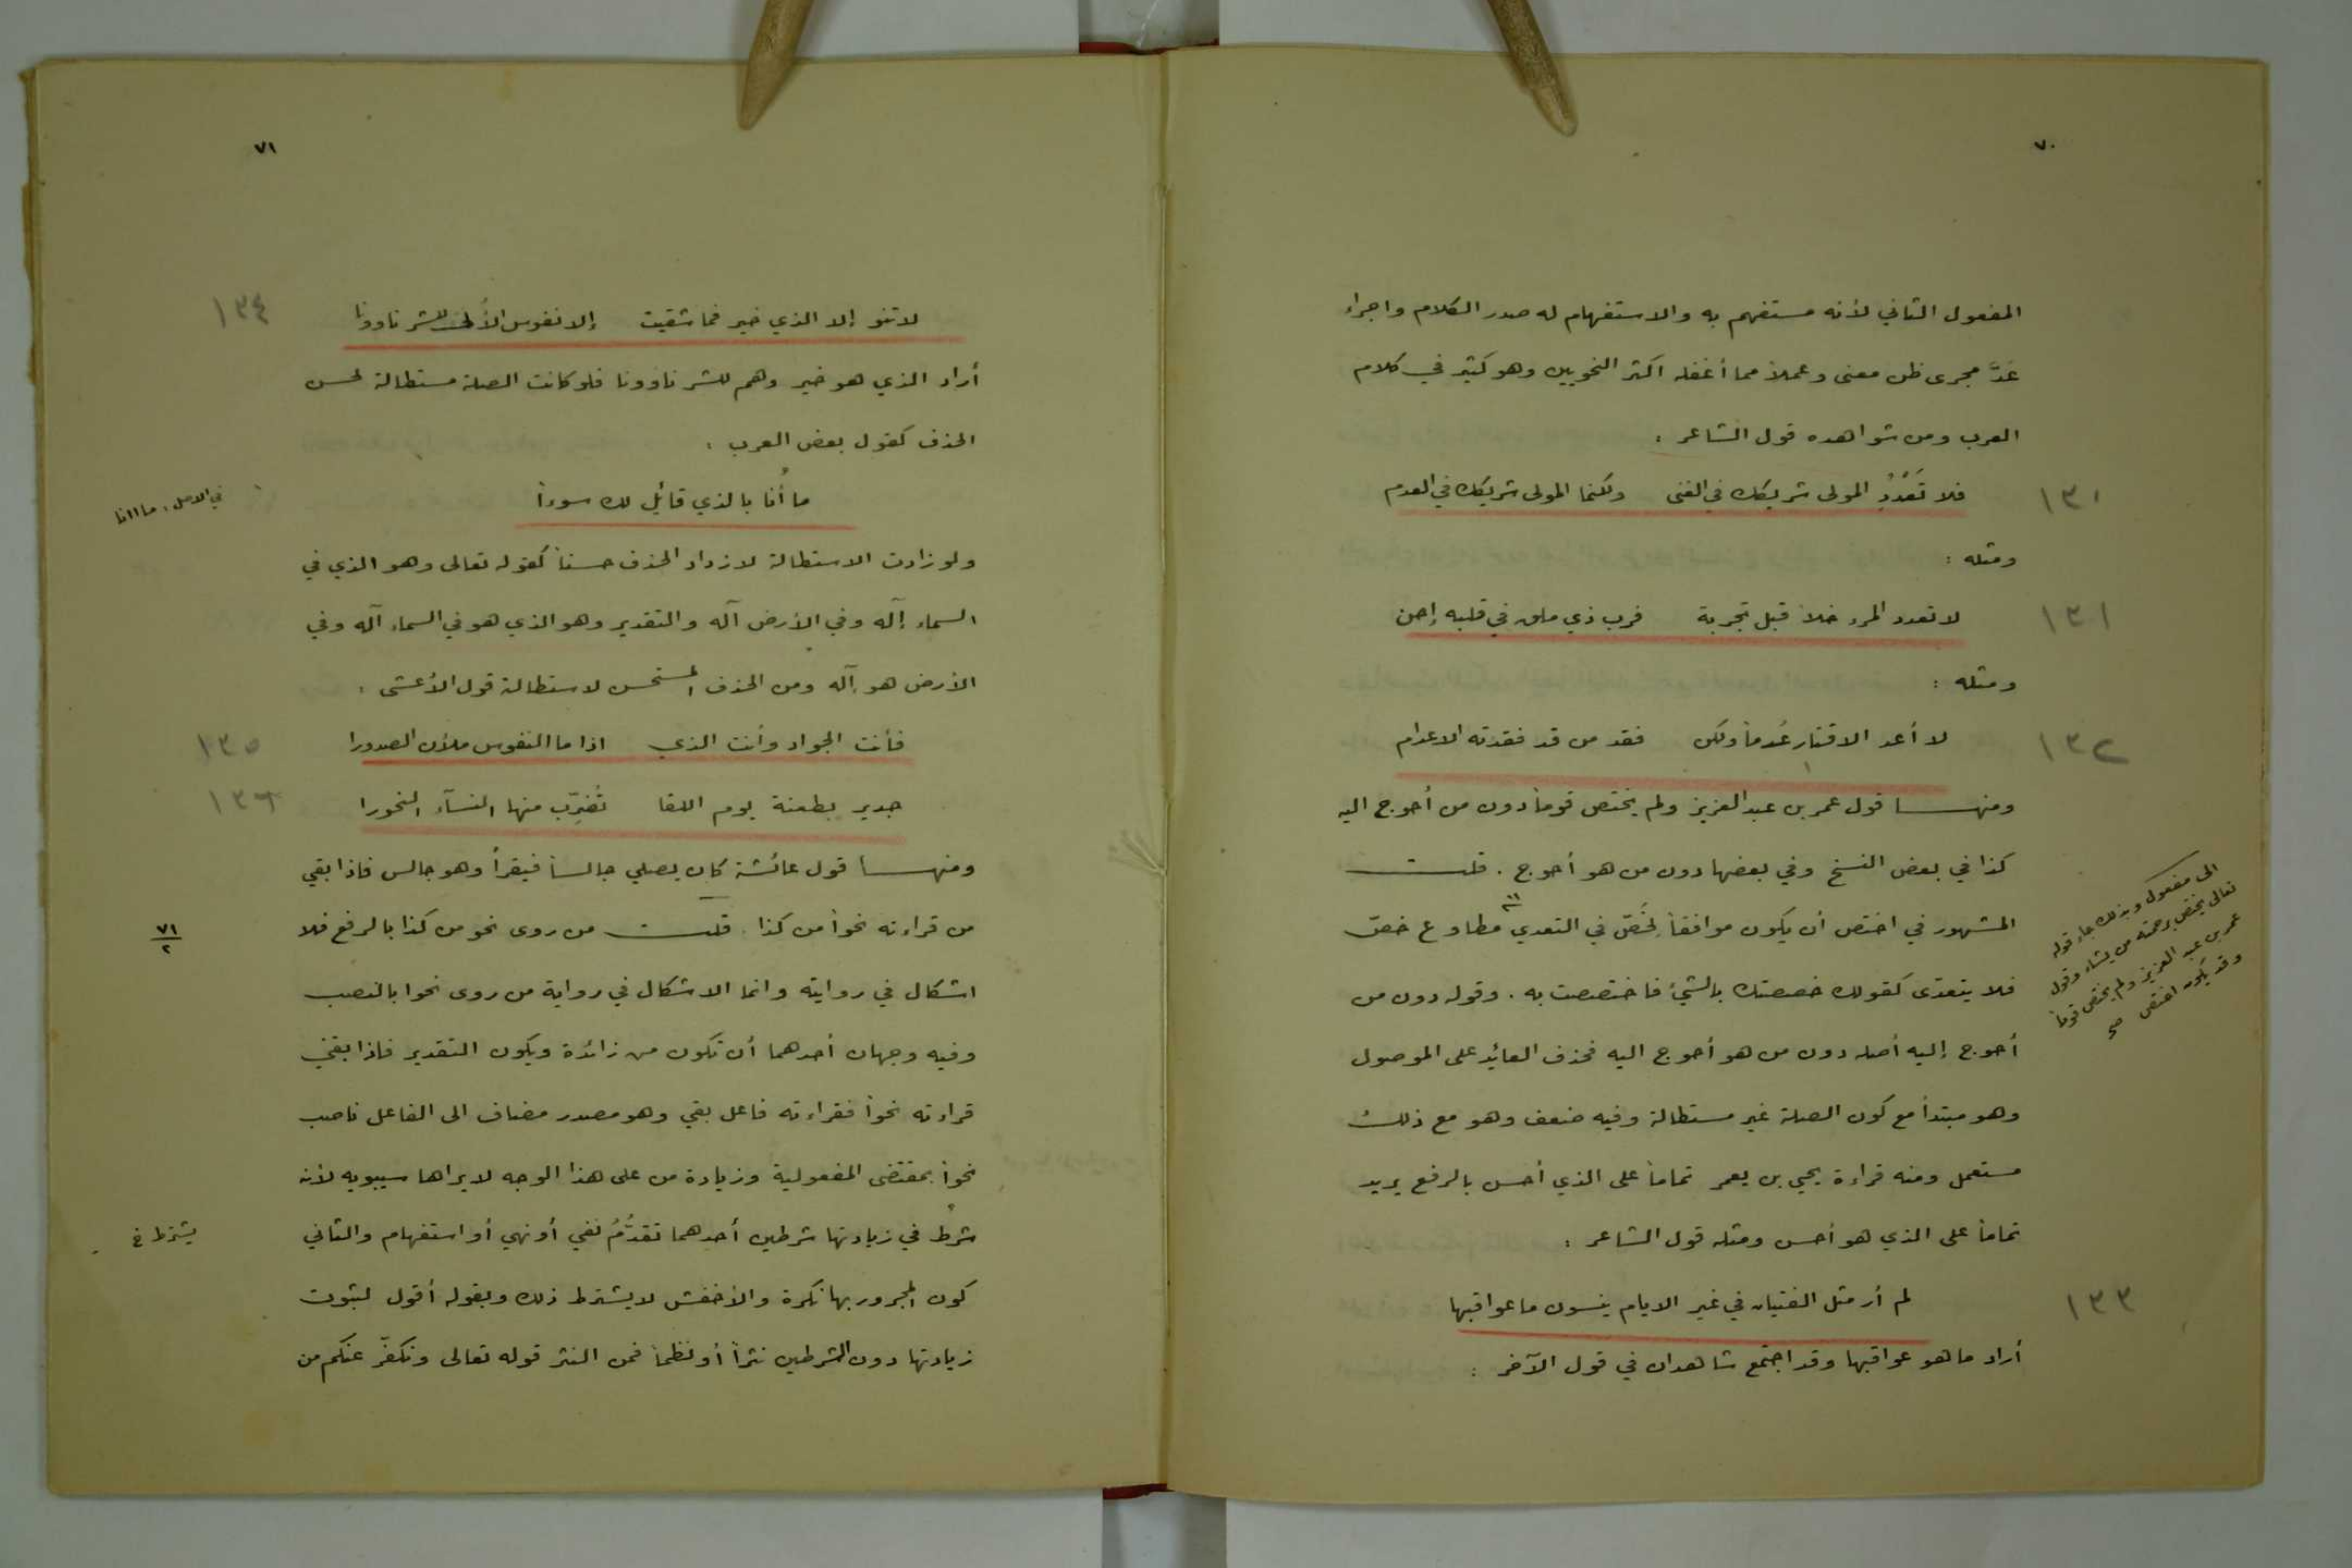 ٧٠
المفعول الثاني لأنه مستفهم به والاستفهام له صدر الكلام واجراء
عَدَّ مجرى ظن معنى وعملاً مما أغفله اكثر النحويين وهو كثير في كلام
العرب ومن شواهده قول الشاعر :
١٣٠ فلا تَعْدُدِ المولى شريكك في الغنى ولكنما المولى شريكك في العدم
ومثله :
١٣١ لا تعدد المرء خلاً قبل تجربة فرب ذي ملق في قلبه إحن
ومثله :
١٣٢ لا أعد الاقتار عُدماً ولكن فقد من قد فقدته الاعدام
ومنهـــا قول عمر بن عبد العزيز ولم يختص قوماً دون من أحوج اليه
كذا في بعض النسخ وفي بعضها دون من هو أحوج . قلـــت
المشهور في اختص أن يكون موافقاً لخَصّ في التعدي مطاوع خصّ
الى مفعول وبذلك جاء قوله
تعالى يختص برحمته من يشاء وقول
عمر بن عبد العزيز ولم يختص قوماً
وقد يكون اختص صح
فلا يتعدى كقولك خصصتك بالشيء فاختصصت به . وقوله دون من
أحوج إليه أصله دون من هو أحوج اليه فحذف العائد على الموصول
وهو مبتدأ مع كون الصلة غير مستطالة وفيه ضعف وهو مع ذلك
مستعمل ومنه قراءة يحيى بن يعمر تماماً على الذي أحسن بالرفع يريد
تماماً على الذي هو أحسن ومثله قول الشاعر :
١٣٣ لم أر مثل الفتيان في غير الايام ينسون ما عواقبها
أراد ما هو عواقبها وقد اجتمع شاهدان في قول الآخر :
٧١
١٣٤ لا تنو إلا الذي خير فما شقيت إلا نفوس الألى للشر ناوونا
أراد الذي هو خير وهم للشر ناوونا فلو كانت الصلة مستطالة لحسن
الحذف كقول بعض العرب :
ما أنا بالذي قائل لك سوءاً
في الاصل : ما اانا
ولو زادت الاستطالة لازداد الحذف حسناً كقوله تعالى وهو الذي في
السماء إله وفي الأرض آله والتقدير وهو الذي هو في السماء آله وفي
الأرض هو إله ومن الحذف المستحسن لاستطالة قول الأعشى :
١٣٥ فأنت الجواد وأنت الذي اذا ما النفوس ملأن الصدورا
١٣٦ جدير بطعنة يوم اللقا تُضَرِّب منها النسآء النحورا
ومنهـــا قول عائشة كان يصلي جالساً فيقرأ وهو جالس فاذا بقي
من قراءته نحواً من كذا . قلـــت من روى نحو من كذا بالرفع فلا
٧١/٢
اشكال في روايته وانما الاشكال في رواية من روى نحوا بالنصب
وفيه وجهان أحدهما أن تكون من زائدة ويكون التقدير فاذا بقي
قراءته نحواً فقراءته فاعل بقي وهو مصدر مضاف الى الفاعل ناصب
نحواً بمقتضى المفعولية وزيادة من على هذا الوجه لا يراها سيبويه لأنه
شرط في زيادتها شرطين أحدهما تقدُّمُ نفي أو نهي أو استفهام والثاني
يشترط خ
كون المجرور بها نكرة والأخفش لا يشترط ذلك وبقوله أقول لثبوت
زيادتها دون الشرطين نثراً أو نظماً فمن النثر قوله تعالى ونكفّر عنكم من